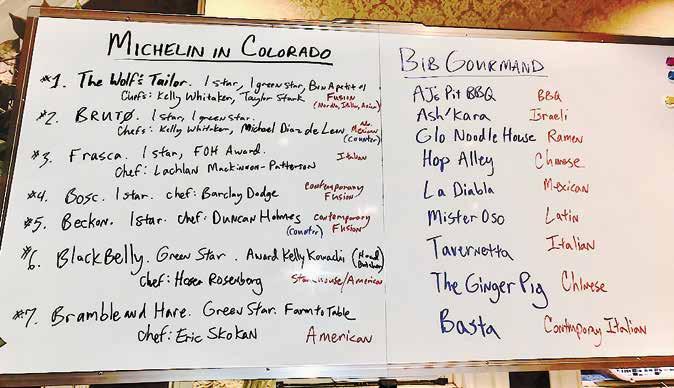 MICHELIN IN COLORADO
#1. The Wolf's Tailor. 1 star, 1 green star, Bon Apetit
Chefs: Kelly Whitaker, Taylor Stark Fusion
(Nordic, Italy, Asian)
#2. BRUTØ. 1 star, 1 green star.
Chefs: Kelly Whitaker, Michael Diaz de Leon Mexican
(counter)
#3. Frasca. 1 star, FOH Award. Italian
Chef: Lachlan Mackinnon-Patterson
#4. Bosc. 1 star. chef: Barclay Dodge contemporary
Fusion
#5. Beckon. 1 star. chef: Duncan Holmes contemporary
(counter) Fusion
#6. BlackBelly. Green Star. Award Kelly Kawachi (Head
Butcher)
Chef: Hosea Rosenberg Steakhouse/American
#7. Bramble and Hare. Green Star. Farm to Table
Chef: Eric Skokan American
BIB GOURMAND
AJs Pit BBQ BBQ
Ash'Kara Israeli
Glo Noodle House Ramen
Hop Alley Chinese
La Diabla Mexican
Mister Oso Latin
Tavernetta Italian
The Ginger Pig Chinese
Basta Contmporary Italian